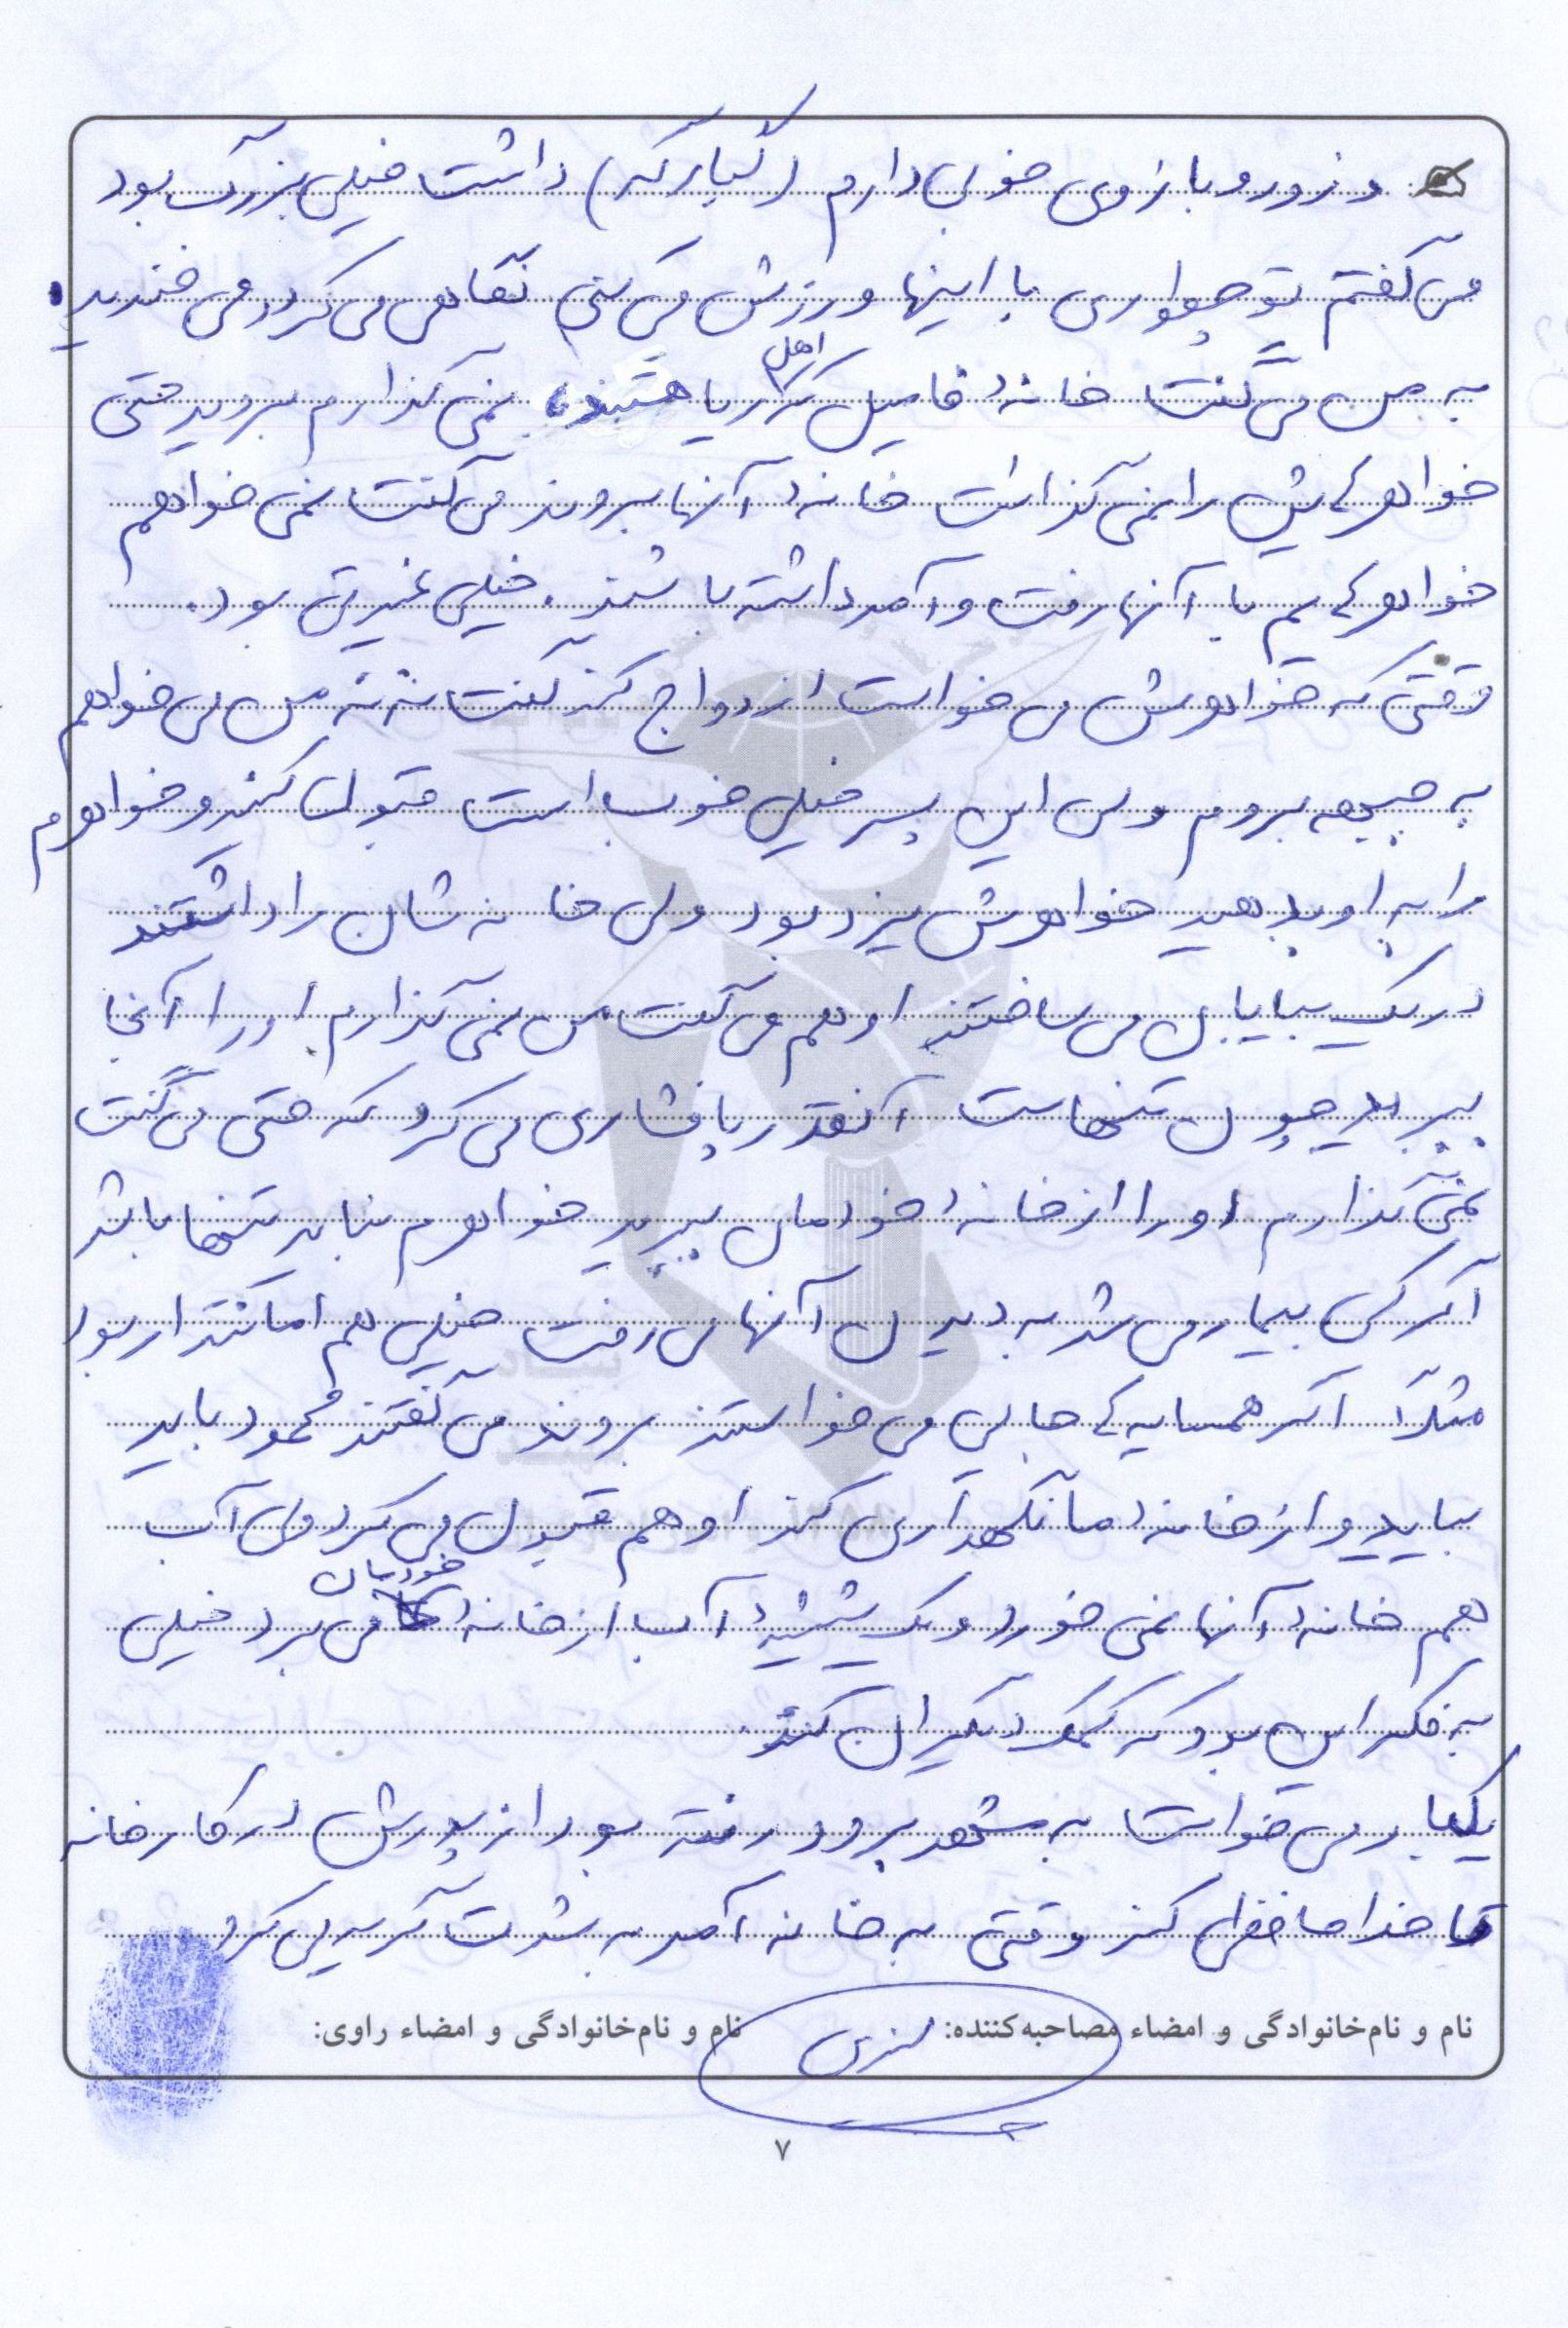 و زور و بازوی خوبی دارم (کباره‌که) داشت خیلی بزرگ بود
می گفتم تو چطوری با اینها ورزش می کنی نگاهی می کرد و می خندید.
به من می گفت خانهٔ فامیل که اهل ریا هستند، نمی گذارم بروید حتی
خواهرهایش را نمی گذاشت خانهٔ آنها بروند می گفت نمی خواهم
خواهرهایم با آنها رفت و آمد داشته باشند. خیلی غیرتی بود.
وقتی که خواهرش می خواست ازدواج کند گفت ننه من می خواهم
به جبهه بروم ولی این پسر خیلی خوب است قبول کنید و خواهرم
را به او بدهید خواهرش یزد بود ولی خانه شان را داشتند
در یک بیابانی می ساختند او هم می گفت من نمی گذارم او را آنجا
ببرید چون تنهاست آنقدر پافشاری می کرد که حتی می گفت
نمی گذارم او را از خانهٔ خودمان ببرید خواهرم نباید تنها باشد
اگر کسی بیمار می شد به دیدن آنها می رفت خیلی هم امانتدار بود
مثلاً اگر همسایه ها جایی می خواستند بروند می گفتند محمود باید
بیاید و از خانهٔ ما نگهداری کند او هم قبول می کرد ولی آب
هم خانهٔ آنها نمی خورد و یک شیشهٔ آب از خانهٔ خودمان می برد خیلی
به فکر این بود که کمک دیگران کند.
یکبار می خواست به مشهد برود رفته بود از پدرش در کارخانه
تا خداحافظی کند وقتی به خانه آمد به شدت گریه می کرد
نام و نام‌خانوادگی و امضاء مصاحبه‌کننده: نام و نام‌خانوادگی و امضاء راوی:
۷